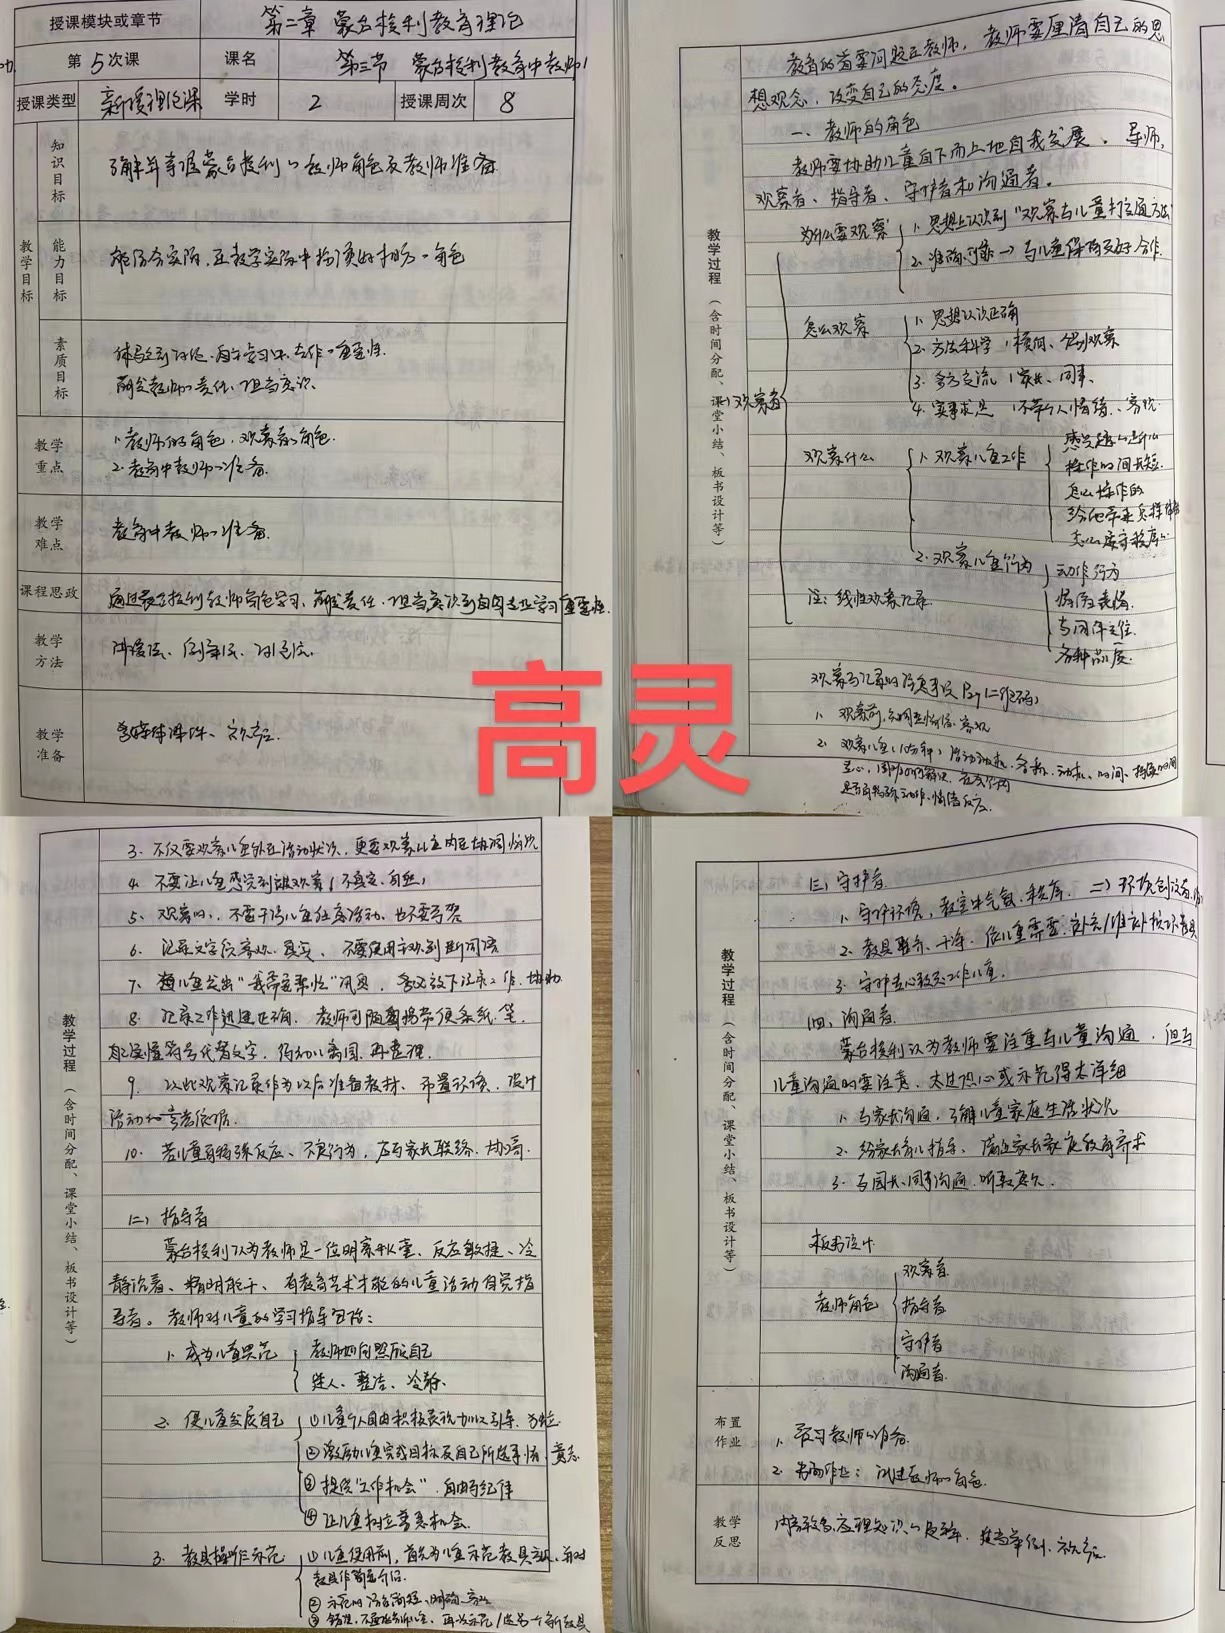 授课模块或章节 第二章 蒙台梭利教育理论
第5次课 课名 第三节 蒙台梭利教育中教师
授课类型 新授理论课 学时 2 授课周次 8
教学目标
知识目标 了解并掌握蒙台梭利的教师角色及教师准备
能力目标 能结合实际,在教学实际中扮演好教师角色
素质目标
教学重点 1.教师的角色,观察者的角色.
2.教育中教师的准备.
教学难点 教育中教师的准备.
课程思政 通过蒙台梭利教师角色学习,萌发责任、担当意识到自身专业学习重要性.
教学方法 讲授法、
教学准备 多媒体课件、
教学过程(含时间分配、课堂小结、板书设计等)
教育的首要问题在教师,教师要厘清自己的思
想观念,改变自己的态度。
一、教师的角色
教师要协助儿童自下而上地自我发展。导师,
观察者、指导者、守护者和沟通者。
(一)观察者
为什么要观察 1.思想上认识到"观察与儿童打交道方法"
2.准确可靠→与儿童保持友好合作.
怎么观察 1.思想认识正确
2.方法科学
3.多方交流(家长、同事、
4.实事求是 不带个人情绪、客观
观察什么 1.观察儿童工作
感兴趣的是什么
操作时间长短.
怎么操作的
2.观察儿童行为 动作行为
情绪表情.
与同伴交往.
各种品质.
注:线性观察记录
高灵
观察与记录时注意事项
1.观察前,
2.观察儿童
3.不仅要观察儿童外在活动状况,更要观察儿童内在协调情况
4.不要让儿童感觉到被观察(不真实、自然)
5.观察时,不要干涉儿童任意活动,也不要夸奖
6.记录文字应客观、真实,不要使用主观判断词语
7.遇儿童发出"我需要帮忙"讯息,务必放下记录工作,协助.
8.记录工作迅速正确,教师可随身携带便条纸、笔,
待幼儿离园,再整理.
9.以此观察记录作为以后准备教材、布置环境、设计
活动的参考依据.
10.若儿童有特殊反应、不良行为,应与家长联络、协商.
教学过程(含时间分配、课堂小结、板书设计等)
(二)指导者
蒙台梭利认为教师是一位明察秋毫、反应敏捷、冷
静沉着、精明能干、有教育艺术才能的儿童活动自觉指
导者。教师对儿童的学习指导包括:
1.成为儿童典范 教师如何照顾自己
迷人、整洁、冷静.
2.使儿童发展自己 ①儿童个人自由积极表现加以引导、
②激励儿童完成目标及自己所选事情、意志
③提供"工作机会",自由与纪律
④让儿童树立善恶机会.
3.教具操作示范 ①儿童使用前,首先为儿童示范教具
教具作简单介绍.
②示范时语言简短、明确、
③
(三)守护者
1.守护环境,教室中气氛、秩序. ⇒环境创设者
2.教具展示、干净,依儿童需要,
3.守护专心致志工作儿童.
(四)沟通者
蒙台梭利认为教师要注重与儿童沟通,但与
儿童沟通时要注意,太过热心或示范得太详细
1.与家长沟通,了解儿童家庭生活状况
2.给家长育儿指导,满足家长家庭教育需求
3.与园长、同事沟通,听取意见.
教学过程(含时间分配、课堂小结、板书设计等)
板书设计
教师角色 观察者
指导者
守护者
沟通者
布置作业 1.预习教师的准备.
2.书面作业:试述教师的角色.
教学反思